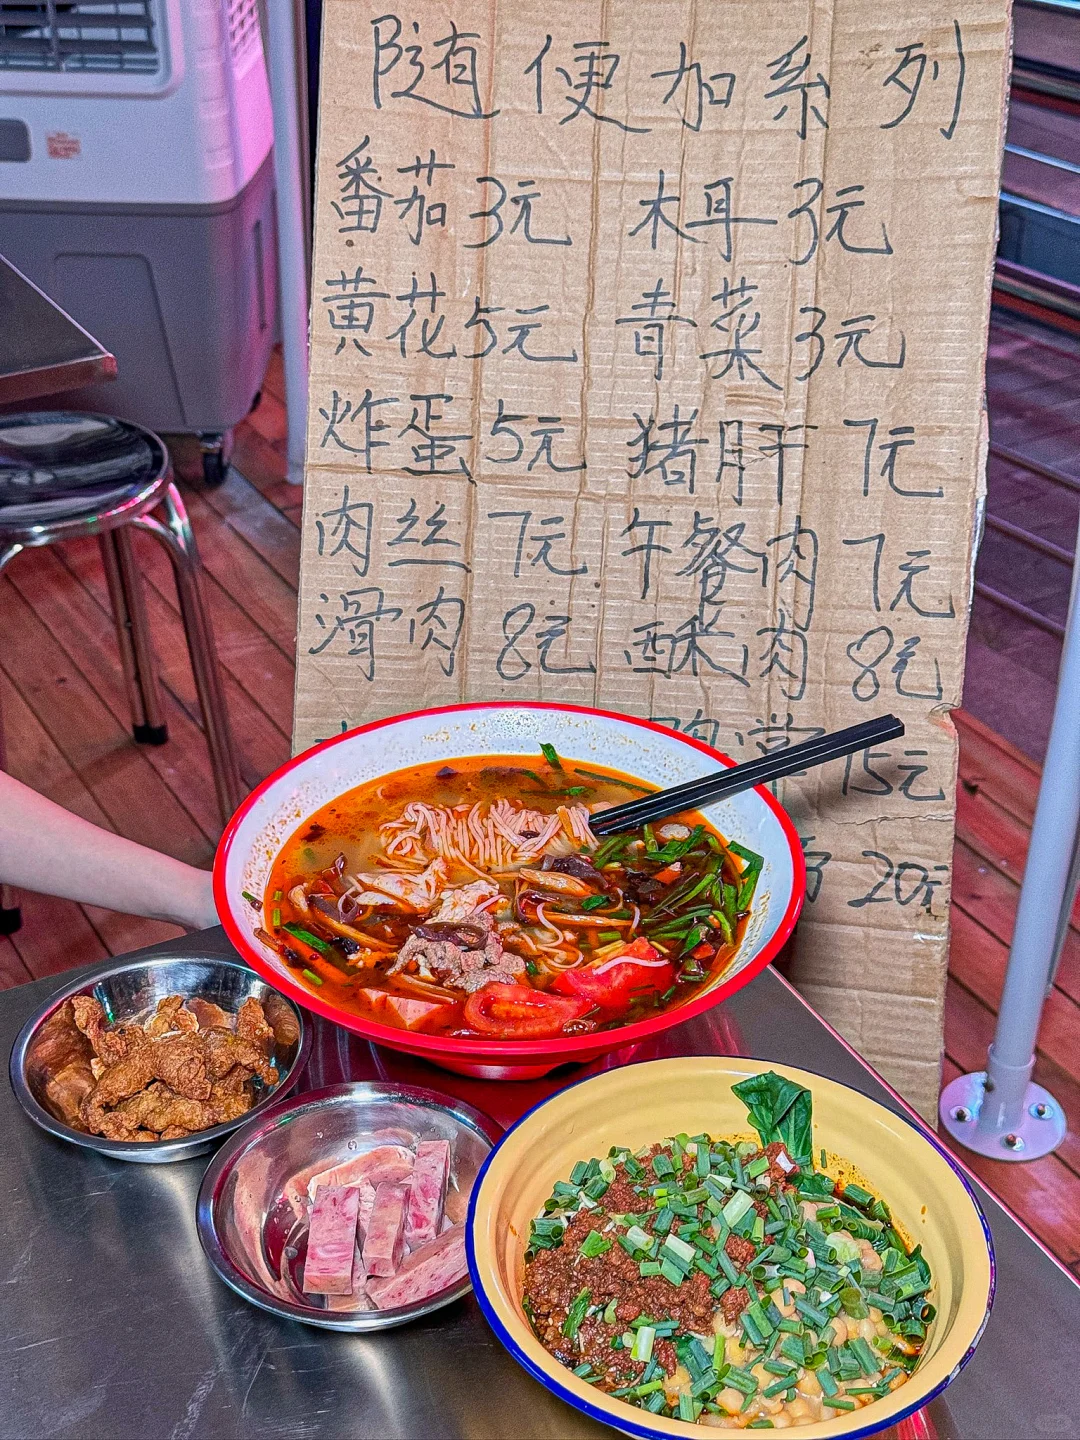 随便加系列
番茄3元 木耳3元
黄花5元 青菜3元
炸蛋5元 猪肝7元
肉丝7元 午餐肉7元
滑肉8元 酥肉8元
15元
20元